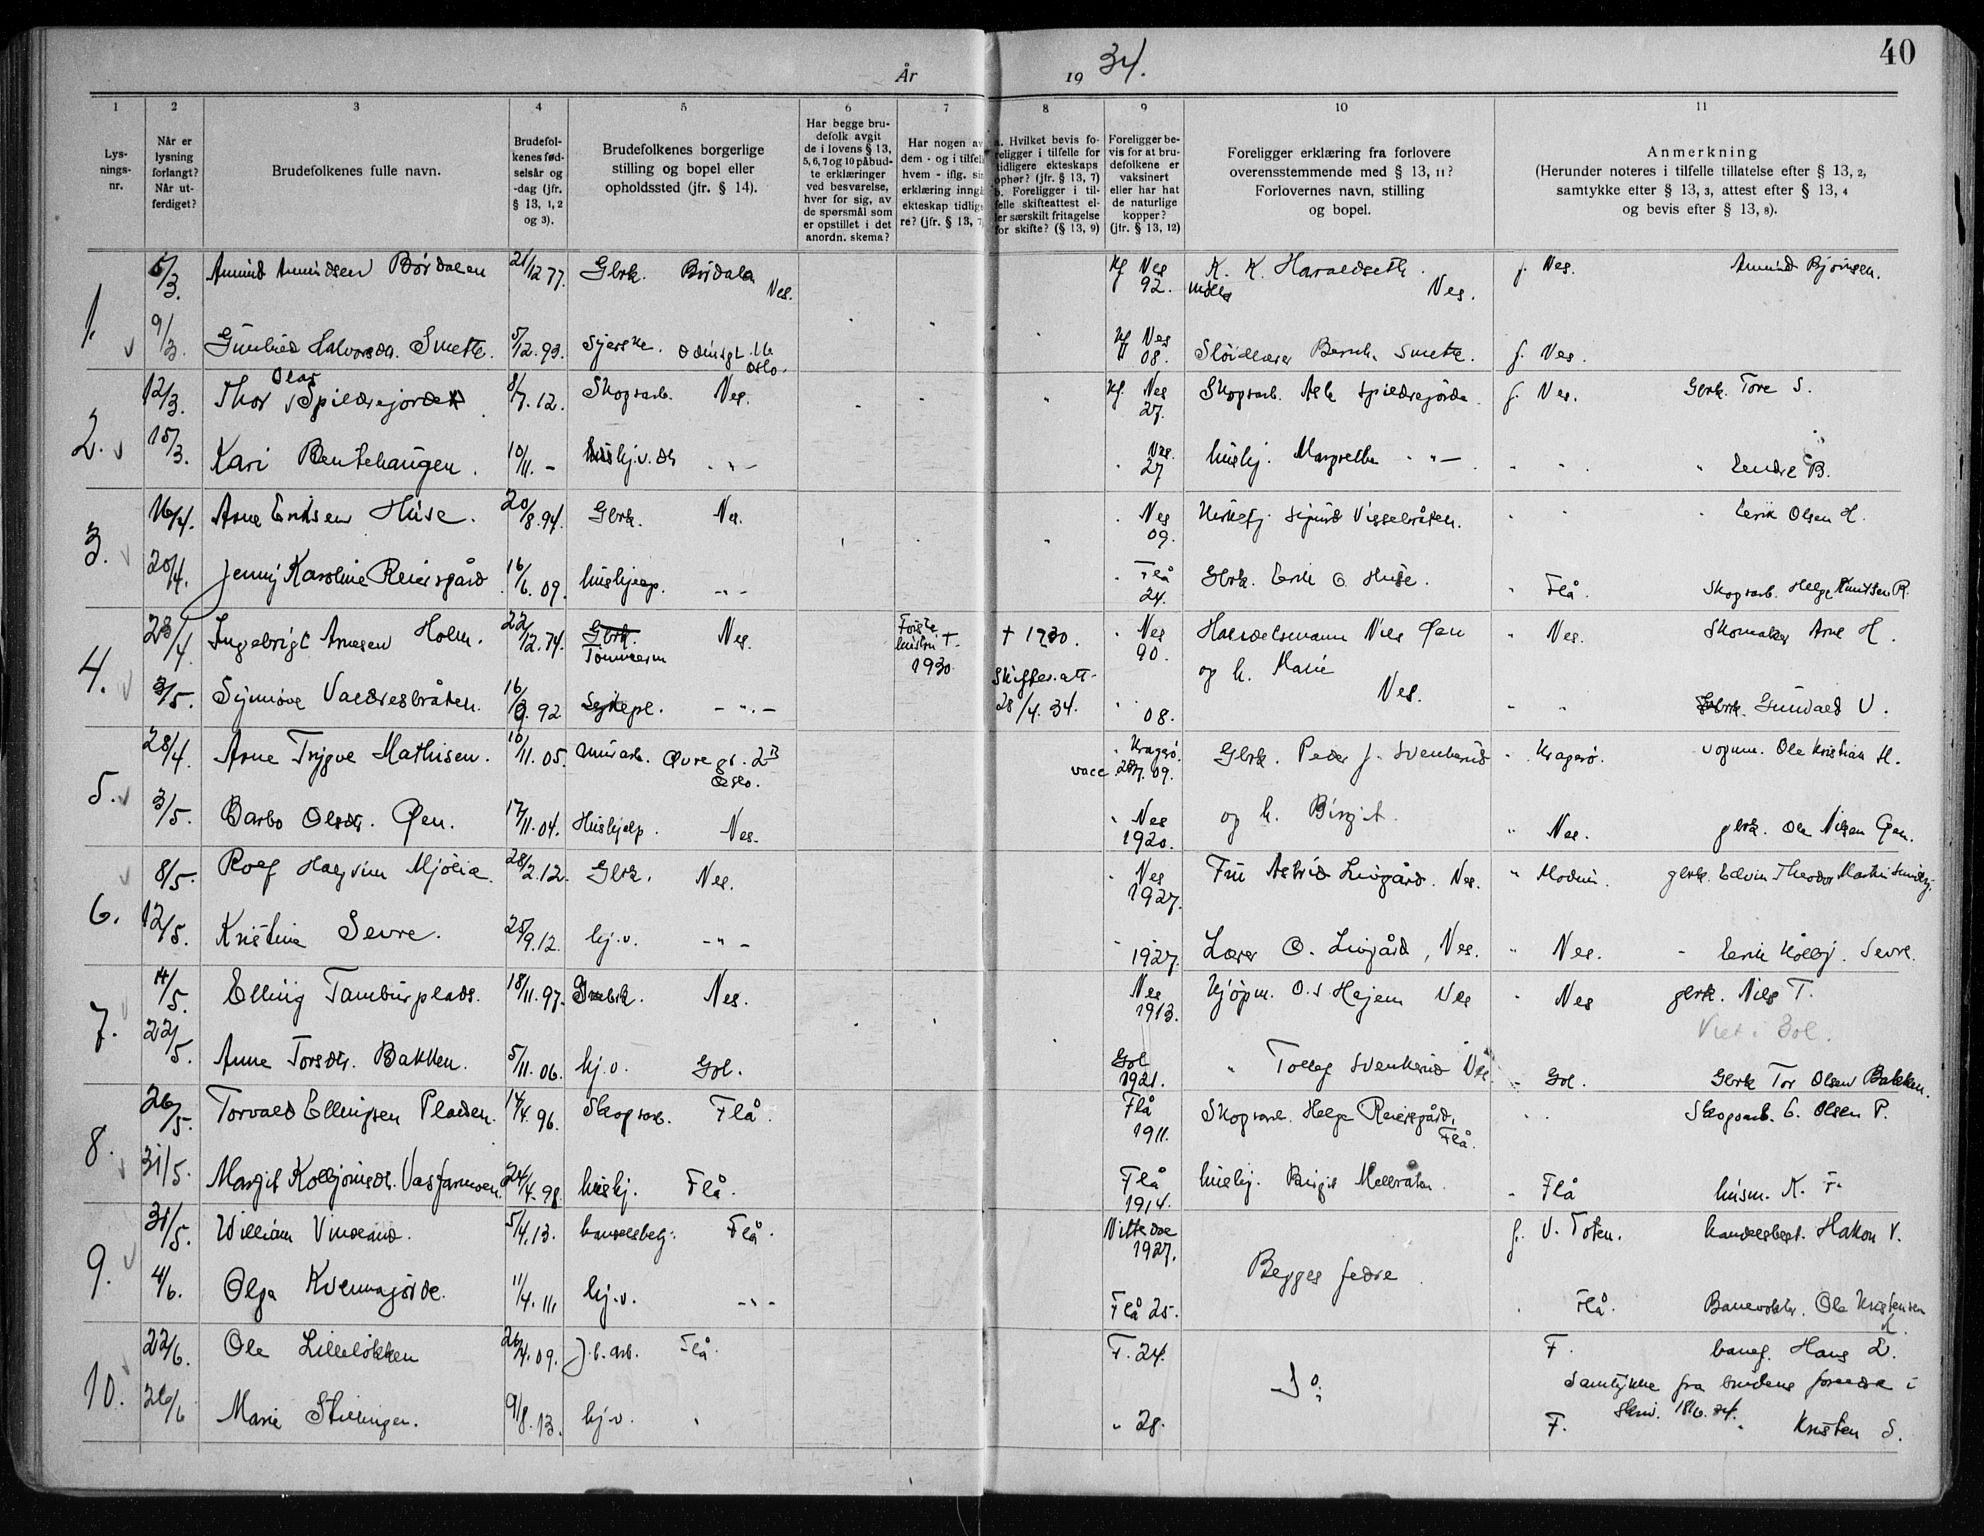 40
År 19 34.
1 2 3 4 5 6 7 8 9 10 11
Lys-
nings-
nr.
Når er
lysning
forlangt?
Når ut-
ferdiget?
Brudefolkenes fulle navn.
Brudefol-
kenes fød-
selsår og
-dag (jfr.
§ 13, 1, 2
og 3).
Brudefolkenes borgerlige
stilling og bopel eller
opholdssted (jfr. § 14).
Har begge bru-
defolk avgit
de i lovens § 13,
5, 6, 7 og 10 påbud-
te erklæringer
ved besvarelse,
hver for sig, av
de spørsmål som
er opstillet i det
anordn. skema?
Har nogen av
dem - og i tilfelle
hvem - iflg. sin
erklæring inngått
ekteskap tidlige-
re? (jfr. § 13, 7)
a. Hvilket bevis fo-
religger i tilfelle for
tidligere ekteskaps
ophør? (jfr. § 13, 7)
b. Foreligger i til-
felle skifteattest el-
ler særskilt fritagelse
for skifte? (§ 13, 9)
Foreligger be-
vis for at bru-
defolkene er
vaksinert
eller har hat
de naturlige
kopper?
(jfr. § 13, 12)
Foreligger erklæring fra forlovere
overensstemmende med § 13, 11?
Forlovernes navn, stilling
og bopel.
Anmerkning
(Herunder noteres i tilfelle tillatelse efter § 13, 2,
samtykke efter § 13, 3, attest efter § 13, 4
og bevis efter § 13, 8).
1. 5/3. Amund Amundsen Børdalen 21/12 77. Gbrk. Børdalen Nes. Kf Nes 92. K. K. Haraldseth. Nes. f. Nes. Amund Bjørnsen.
9/3. Gunhild Halvorsdr. Smette. 5/12.93. Syerske. Oslo. Kf Nes 08. Sløidlærer Bernh. Smette. f. Nes.
2. 12/3. Thor Olav Spildrejorde. 8/7.12. Skogsarb. Nes. Kf. Nes 27. Skogsarb. Asle Spildrejorde f. Nes. Gbrk. Tore S.
15/3. Kari Bentehaugen. 10/11. - Nes. 27 hushj. Margrethe -"- " Endre B.
3. 16/4. Arne Eriksen Huse. 20/8.94. Gbrk. Nes. Nes 09. Kirketj. Sigurd Visselbråten. " Erik Olsen H.
20/4. Jenny Karoline Reiersgård 16/6.09. hushjelp. -"- Flå 24. Gbrk. Erik O. Huse. " Flå. Skogsarb. Helge Knutsen R.
4. 23/4. Ingebrigt Arnesen Holm. 22/12.74. Gbrk. Tømmerm Nes. Første hustru † 1930 † 1930. Nes 90. Handelsmann Nils Øen " Nes. Skomaker Arne H.
3/5. Synnøve Valdresbråten. 16/9.92 Sykepl. -"- Skifteatt. 28/4.34. 08. og h. Marie Nes. " Gbrk. Gunvald V.
5. 28/4. Arne Trygve Mathisen. 10/11.05. Murarb. Øvre gt. 2B Oslo. Kragerø. vacc 09. Gbrk. Peder J. Svenkerud " Kragerø. vognm. Ole Kristian M.
3/5. Barbo Olsdtr. Øen. 17/11.04. Hushjelp. Nes. Nes 1920. og h. Birgit. " Nes. gbrk. Ole Nilsen Øen.
6. 8/5. Rolf Halgrim Mjølid. 28/2.12. Gbrk. Nes. Nes 1927. Fru Astrid Livgård. Nes. " Modum. gbrk. Edvin Theodor Martin
12/5. Kristine Sevre. 25/9.12. hj.v. -"- 1927. Lærer O. Livgård, Nes. " Nes. " Erik Kolbj. Sevre.
7. 14/5. Elling Tamburplads. 18/11.97. Nes. Nes 1913. Kjøpm. O.S Hejem Nes " Nes gbrk. Nils T.
Viet i Gol.
22/5. Anne Torsdtr. Bakken. 5/11.06. hj.v. Gol. Gol 1921. " Tolleg Svenkerud Nes " Gol. Gbrk Tor Olsen Bakken.
8. 26/5. Torvald Ellingsen Pladsen. 14/4.96. Skogsarb. Flå. Flå 1911. Skogsarb. Helge Reiersgård, Flå. Skogsarb. E. Olsen P.
31/5. Margit Kolbjørnsdr. Vasfarmoen. 24/4.98. hushj. Flå. Flå 1914. hushj. Birgit Mellråten. " Flå husm. K. F.
9. 31/5. William Vindland. 5/4.13. handelsbetj. Flå. Nittedal 1927. Begges fedre. f. V. Toten. handelsbest. Hakon V.
4/6. Olga Kvennajorde. 11/4.11. hj.v. -"- Flå 25. Flå. Banevokter. Ole Kristensen K.
10. 22/6. Ole Lilleløkken 26/4.09. J.b.arb. Flå. F. 24. Do. F. banef. Hans L.
Samtykke fra brudens foreldre i
Skriv. 18/6.34.
26/6 Marie Stillinger. 9/8.13. hj.v. " 28. F. Kristen S.